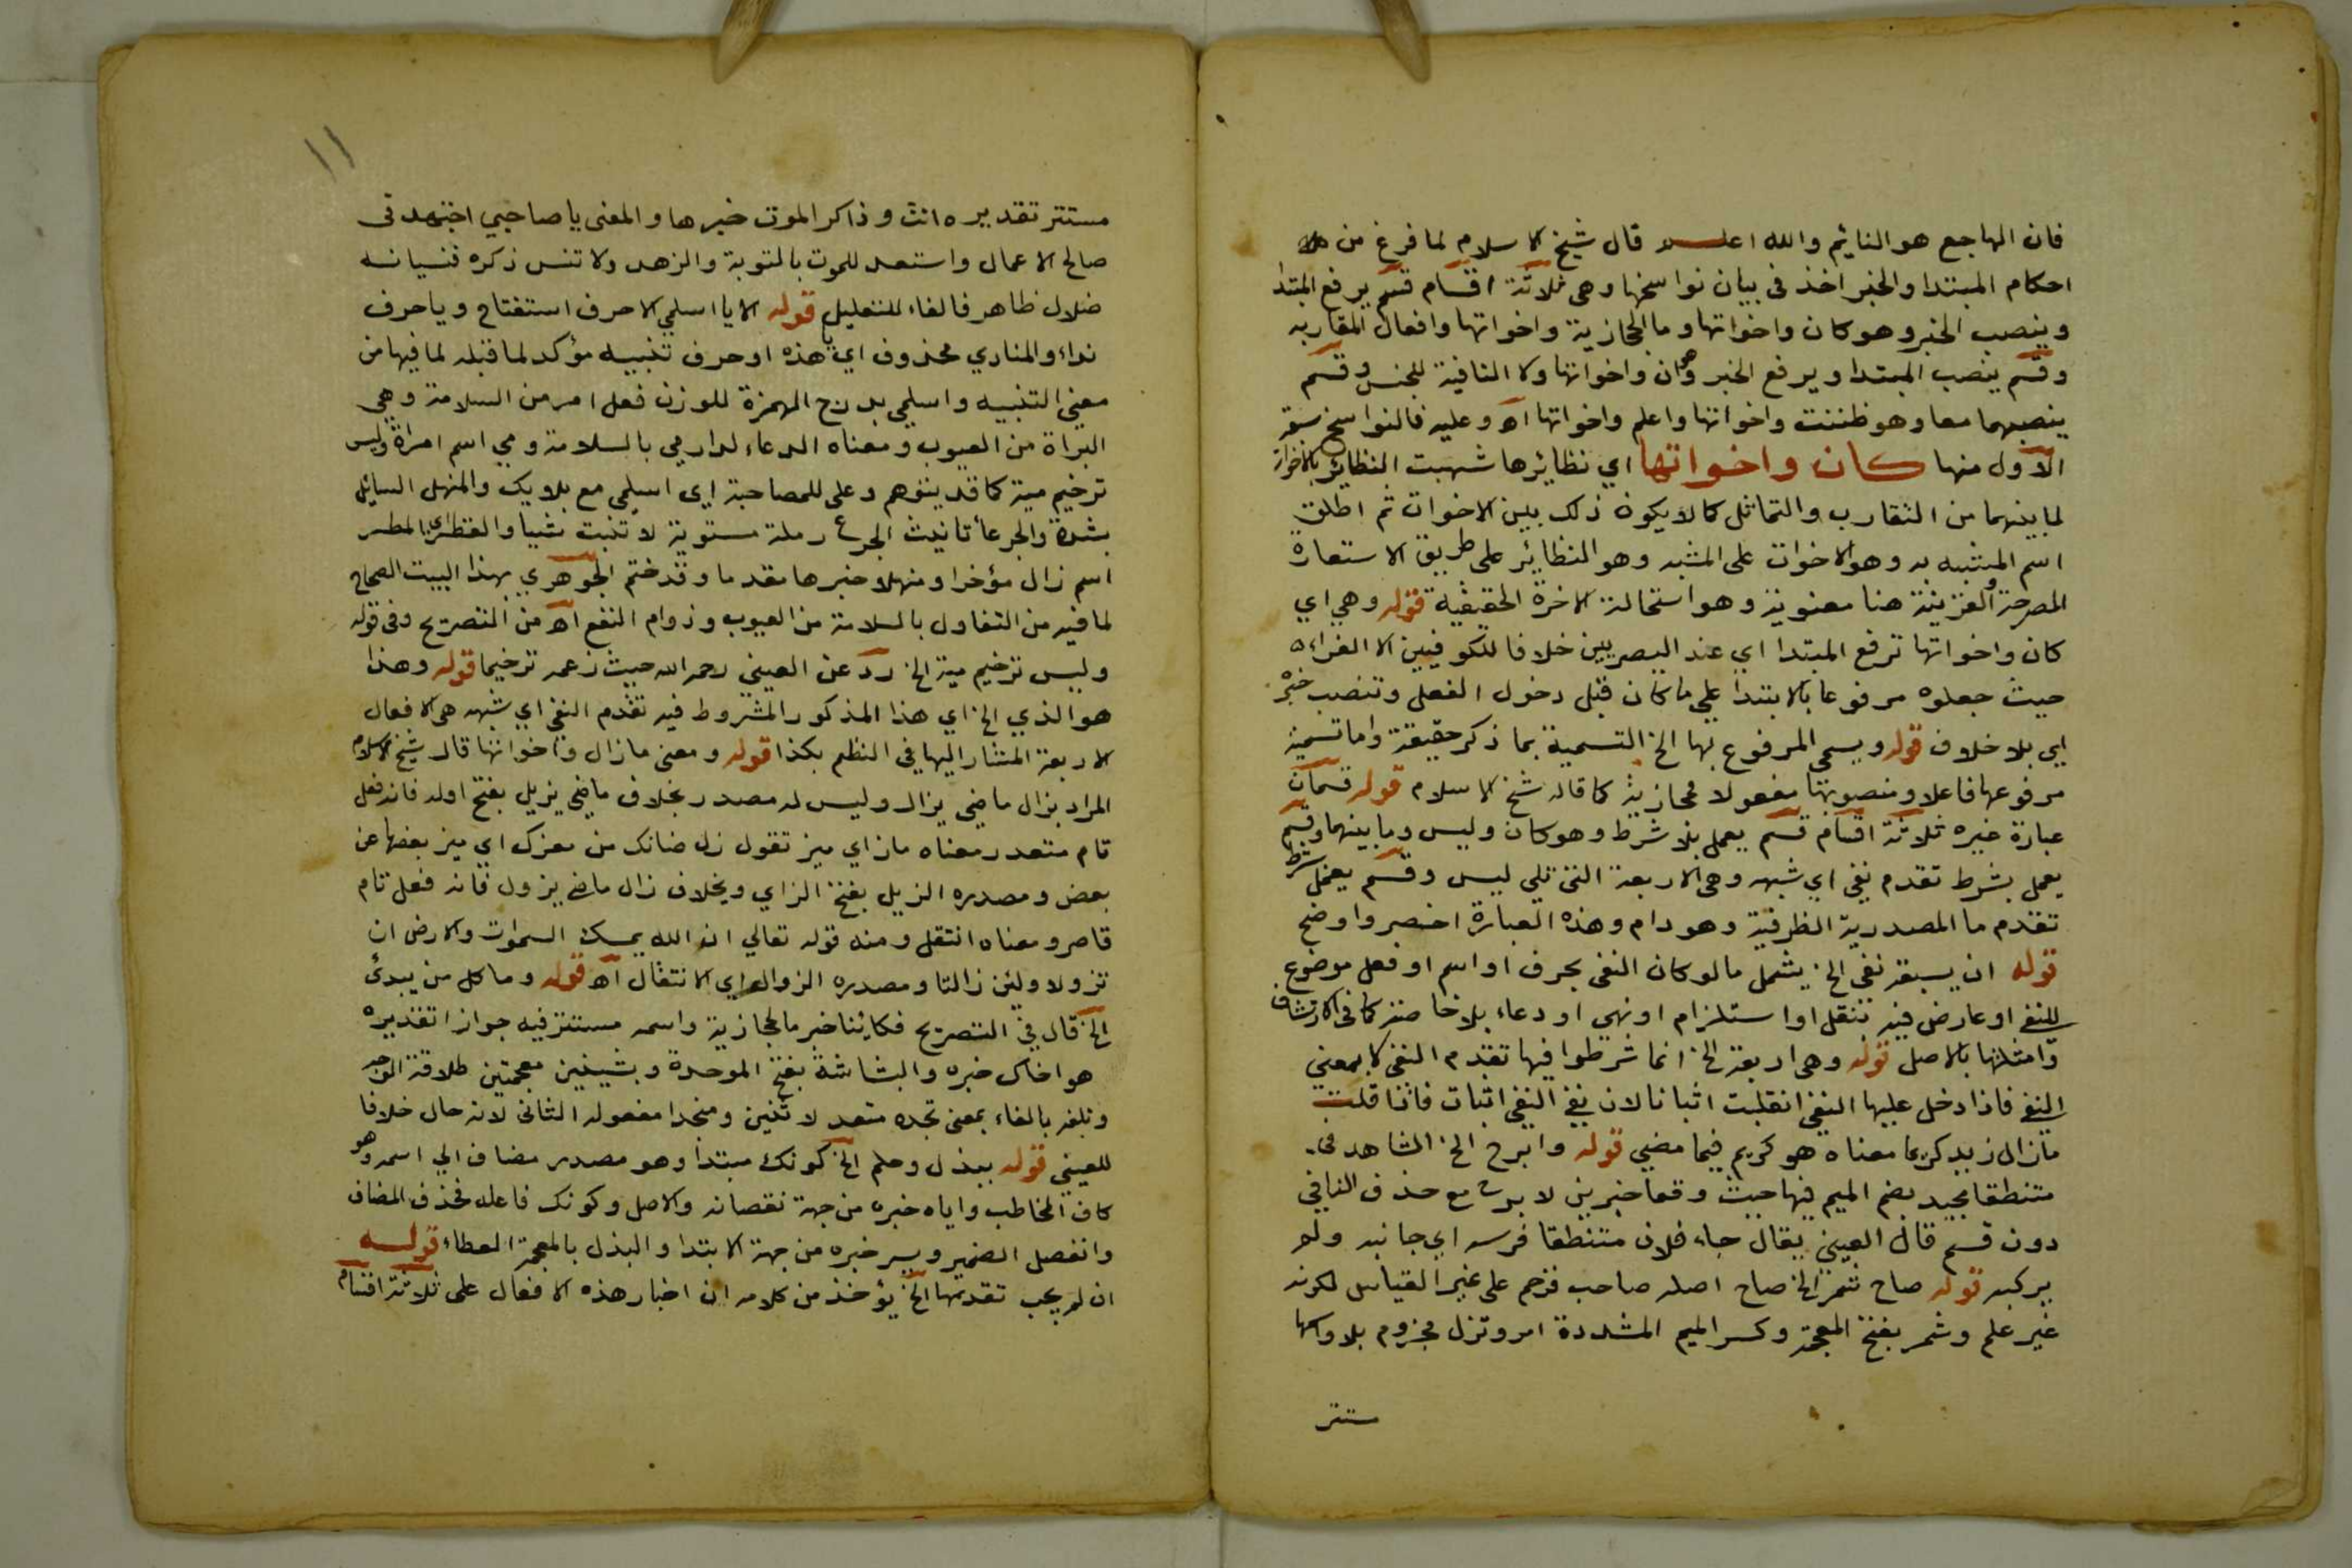 فان الهاجع هو النايم والله اعلم قال شيخ الاسلام لما فرغ من
احكام المبتدا والخبر اخذ في بيان نواسخها وهي ثلاثة اقسام قسم يرفع المبتدا
وينصب الخبر وهو كان واخواتها وما الحجازية واخواتها وافعال المقاربه
وقسم ينصب المبتدا ويرفع الخبر وهو ان واخواتها ولا النافية للجنس وقسم
ينصبهما معا وهو ظننت واخواتها واعلم واخواتها اه وعليه فالنواسخ ستة
الاول منها كان واخواتها اي نظائرها شبهت النظائر بالاخوات
لما بينهما من التقارب والتماثل كما لا يكون ذلك بين الاخوات ثم اطلق
اسم المشبه به وهو الاخوات على المشبه وهو النظائر على طريق الاستعارة
المصرحة والقرينة هنا معنوية وهو استحالة الاخوة الحقيقية قوله وهي اي
كان واخواتها ترفع المبتدا اي عند البصريين خلافا للكوفيين الا الفراء
حيث جعلوه مرفوعا بالابتدا على ما كان قبل دخول الفعل وتنصب خبره
اي بلا خلاف قوله ويسمى المرفوع بها الخ التسمية بما ذكر حقيقة واما تسمية
مرفوعها فاعلا ومنصوبها مفعولا فمجازية كما قاله شيخ الاسلام قوله قسمان
عبارة غيره ثلاثة اقسام قسم يعمل بلا شرط وهو كان وليس وما بينهما وقسم
يعمل بشرط تقدم نفي اي شبهه وهي الاربعة التي تلي ليس وقسم يعمل بشرط
تقدم ما المصدرية الظرفية وهو دام وهذه العبارة اخصر واوضح
قوله ان يسبقه نفي الخ يشمل ما لو كان النفي بحرف او اسم او فعل موضوع
للنفي او عارض فيه بنقل او استلزام او نهي او دعاء بلا خاصة كما في الارتشاف
وامثلتها بالاصل قوله وهي اربعة الخ انما شرطوا فيها تقدم النفي لا بمعني
النفي فاذا دخل عليها النفي انقلبت اثباتا لان نفي النفي اثبات فاذا قلت
مازال زيد كريما معناه هو كريم فيما مضي قوله وابرح الخ الشاهد في
منتطقا مجيد بضم الميم فيها حيث وقعا خبرين لا برح مع حذف النافي
دون قسم قال العيني يقال جاء فلان منتطقا فرسه اي جانبه ولم
يركبه قوله صاح شمر الخ صاح اصله صاحب فرخم على غير القياس لكونه
غير علم وشمر بفتح المعجمة وكسر الميم المشددة امر وتزل مجزوم بلا واسمها
مستتر
١١
مستتر تقديره انت وذاكر الموت خبرها والمعنى يا صاحبي اجتهد في
صالح الاعمال واستعد للموت بالتوبة والزهد ولا تنس ذكره فنسيانه
ضلال ظاهر فالفاء للتعليل قوله الا يا اسلمي الا حرف استفتاح ويا حرف
نداء والمنادي محذوف اي يا هذه او حرف تنبيه مؤكد لما قبله لما فيها من
معنى التنبيه واسلمي بدرج الهمزة للوزن فعل امر من السلامة وهي
البراة من العيوب ومعناه الدعاء لدار مي بالسلامة ومي اسم امراة وليس
ترخيم مية كما قد يتوهم وعلى للمصاحبة اي اسلمي مع بلايك والمنهل السائل
بشدة والجرعا تانيث الجرع رملة مستوية لا تنبت شيا والقطر اي المطر
اسم زال مؤخرا ومنهلا خبرها مقدما وقد ختم الجوهري بهذا البيت الصحاح
لما فيه من التفاول بالسلامة من العيوب ودوام النفع اه من التصريح وفي قوله
وليس ترخيم مية الخ رد عن العيني رحمه الله حيث زعمه ترخيما قوله وهذا
هو الذي الخ اي هذا المذكور المشروط فيه تقدم النفي اي شبهه هي الافعال
الاربعة المشار اليها في النظم بكذا قوله ومعنى مازال واخواتها قال شيخ الاسلام
المراد بزال ماضي يزال وليس له مصدر بخلاف ماضي يزيل بفتح اوله فانه فعل
تام متعد ومعناه ماز اي ميز تقول زل ضانك من معزك اي ميز بعضها عن
بعض ومصدره الزيل بفتح الزاي وبخلاف زال ماضي يزول فانه فعل تام
قاصر ومعناه انتقل ومنه قوله تعالي ان الله يمسك السموات والارض ان
تزولا ولئن زالتا ومصدره الزوال اي الانتقال اه قوله وما كل من يبدئ
الخ قال في التصريح فكائنا خبر ما الحجازية واسمه مستتر فيه جوازا تقديره
هو اخاك خبره والبشاشة بفتح الموحدة وبشينين معجمتين طلاقة الوجه
وتلفه بالفاء بمعنى تجده متعد لاثنين ومنجدا مفعوله الثاني لانه حال خلافا
للعيني قوله ببذل وحلم الخ كونك مبتدا وهو مصدر مضاف الي اسمه وهو
كاف المخاطب واياه خبره من جهة نقصانه والاصل وكونك فاعله فحذف المضاف
وانفصل الضمير ويسر خبره من جهة الابتدا والبذل بالمعجمة العطاء قوله
ان لم يجب تقديمها الخ يؤخذ من كلامه ان اخبار هذه الافعال على ثلاثة اقسام